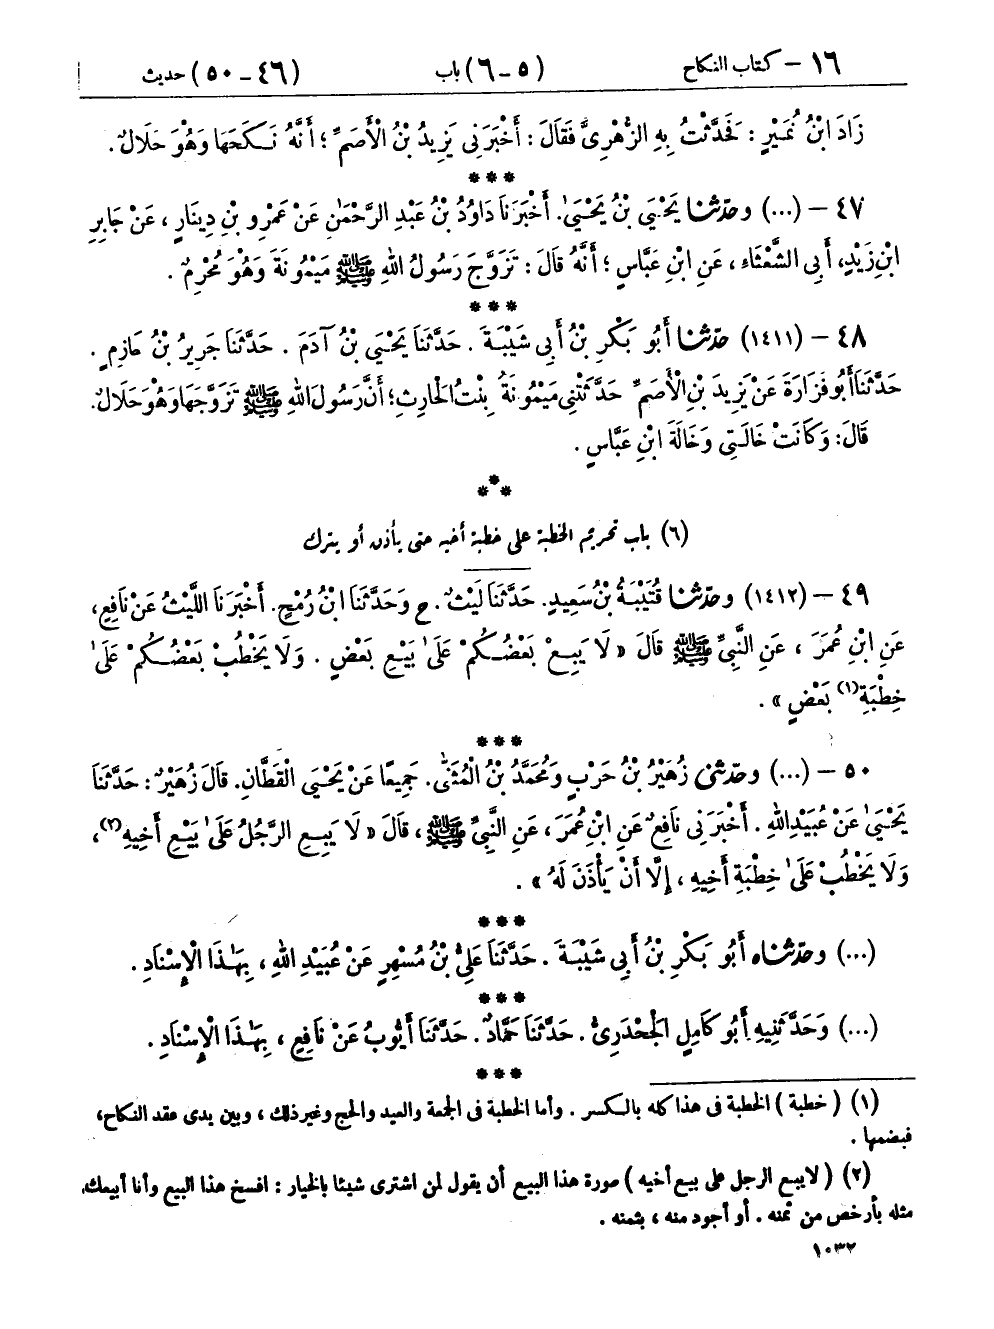 ١٦ – كتاب النكاح (٥ – ٦) باب (٤٦ – ٥٠) حديث
زَادَ ابْنُ نُمَيْرٍ : فَحَدَّثْتُ بِهِ الزُّهْرِىَّ فَقَالَ : أَخْبَرَنِى يَزِيدُ بْنُ الْأَصَمِّ ؛ أَنَّهُ نَكَحَهَا وَهُوَ حَلَالٌ .
***
٤٧ – (...) وحدّثنا يَحْيَىٰ بْنُ يَحْيَىٰ. أَخْبَرَنَا دَاوُدُ بْنُ عَبْدِ الرَّحْمَٰنِ عَنْ عَمْرِو بْنِ دِينَارٍ ، عَنْ جَابِرِ
ابْنِ زَيْدٍ، أَبِى الشَّعْثَاءِ ، عَنِ ابْنِ عَبَّاسٍ ؛ أَنَّهُ قَالَ : تَزَوَّجَ رَسُولُ اللهِ ﷺ مَيْمُونَةَ وَهُوَ مُحْرِمٌ .
***
٤٨ – (١٤١١) حدّثنا أَبُو بَكْرِ بْنُ أَبِى شَيْبَةَ . حَدَّثَنَا يَحْيَىٰ بْنُ آدَمَ . حَدَّثَنَا جَرِيرُ بْنُ حَازِمٍ .
حَدَّثَنَا أَبُو فَزَارَةَ عَنْ يَزِيدَ بْنِ الْأَصَمِّ حَدَّثَتْنِى مَيْمُونَةُ بِنْتُ الْحَارِثِ ؛ أَنَّ رَسُولَ اللهِ ﷺ تَزَوَّجَهَا وَهُوَ حَلَالٌ.
قَالَ: وَكَانَتْ خَالَتِى وَخَالَةَ ابْنِ عَبَّاسٍ .
***
(٦) باب تحريم الخطبة على خطبة أخيه حتى يأذن أو يترك
٤٩ – (١٤١٢) وحدّثنا قُتَيْبَةُ بْنُ سَعِيدٍ. حَدَّثَنَا لَيْثٌ . ح وَحَدَّثَنَا ابْنُ رُمْحٍ. أَخْبَرَنَا اللَّيْثُ عَنْ نَافِعٍ،
عَنِ ابْنِ عُمَرَ ، عَنِ النَّبِىِّ ﷺ قَالَ « لَا يَبِعْ بَعْضُكُمْ عَلَىٰ بَيْعِ بَعْضٍ . وَلَا يَخْطُبْ بَعْضُكُمْ عَلَىٰ
خِطْبَةِ(١) بَعْضٍ » .
***
٥٠ – (...) وحدّثنى زُهَيْرُ بْنُ حَرْبٍ وَمُحَمَّدُ بْنُ الْمُثَنَّىٰ. جَمِيعًا عَنْ يَحْيَى الْقَطَّانِ. قَالَ زُهَيْرٌ : حَدَّثَنَا
يَحْيَىٰ عَنْ عُبَيْدِ اللهِ . أَخْبَرَنِى نَافِعٌ عَنِ ابْنِ عُمَرَ ، عَنِ النَّبِىِّ ﷺ ، قَالَ « لَا يَبِعِ الرَّجُلُ عَلَىٰ بَيْعِ أَخِيهِ(٢) ،
وَلَا يَخْطُبْ عَلَىٰ خِطْبَةِ أَخِيهِ ، إِلَّا أَنْ يَأْذَنَ لَهُ » .
***
(...) وحدّثناه أَبُو بَكْرِ بْنُ أَبِى شَيْبَةَ . حَدَّثَنَا عَلِىُّ بْنُ مُسْهِرٍ عَنْ عُبَيْدِ اللهِ ، بِهَٰذَا الْإِسْنَادِ .
***
(...) وَحَدَّثَنِيهِ أَبُو كَامِلٍ الْجَحْدَرِىُّ . حَدَّثَنَا حَمَّادٌ . حَدَّثَنَا أَيُّوبُ عَنْ نَافِعٍ ، بِهَٰذَا الْإِسْنَادِ .
***
(١) ( خطبة ) الخطبة فى هذا كله بالكسر . وأما الخطبة فى الجمعة والعيد والحج وغير ذلك ، وبين يدى عقد النكاح،
فبضمها .
(٢) ( لا يبع الرجل على بيع أخيه ) صورة هذا البيع أن يقول لمن اشترى شيئا بالخيار : افسخ هذا البيع وأنا أبيعك
مثله بأرخص من ثمنه . أو أجود منه ، بثمنه .
١٠٣٢